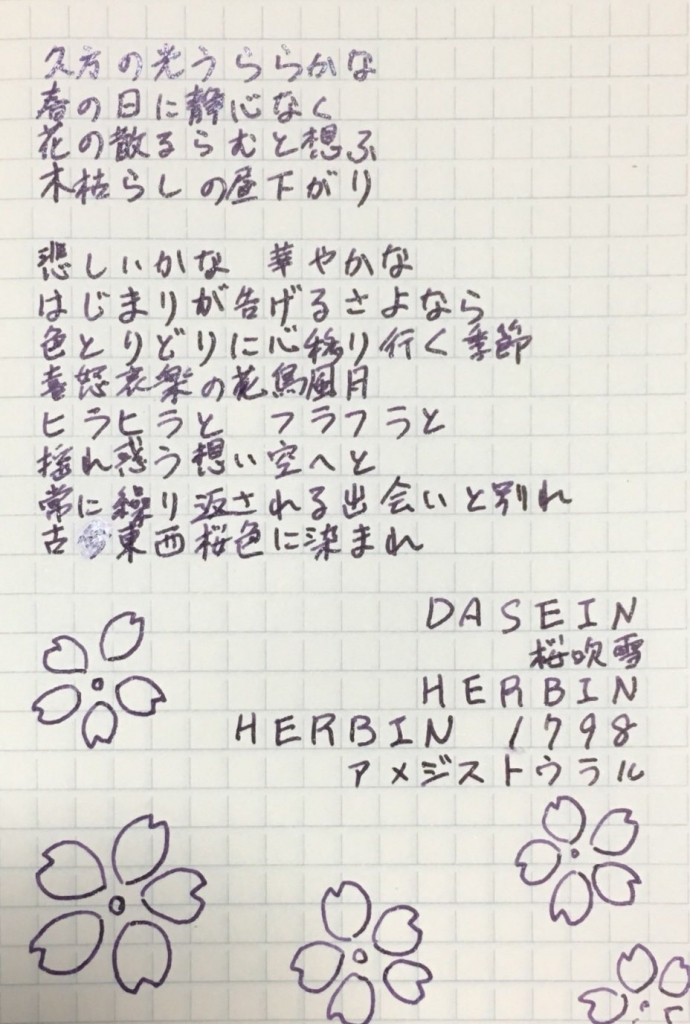 久方の光うららかな
春の日に静心なく
花の散るらむと想ふ
木枯らしの昼下がり
悲しいかな 華やかな
はじまりが告げるさよなら
色とりどりに心移り行く季節
喜怒哀楽の花鳥風月
ヒラヒラと フラフラと
揺れ惑う想い空へと
常に繰り返される出会いと別れ
古 東西桜色に染まれ
DASEIN
桜吹雪
HERBIN
HERBIN 1798
アメジストウラル